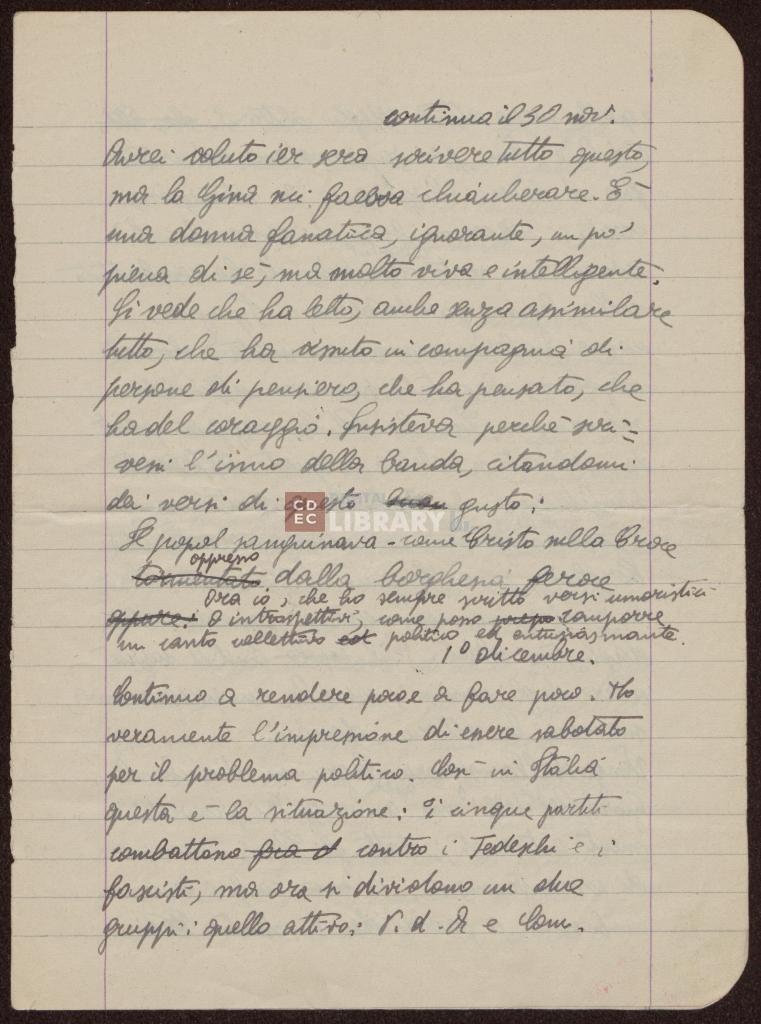 continua il 30 nov.
Avrei voluto ier sera scrivere tutto questo,
ma la Gina mi faceva chiacchierare. È
una donna fanatica, ignorante, un po'
piena di sè, ma molto viva e intelligente.
Si vede che ha letto, anche senza assimilare
tutto, che ha vissuto in compagnia di
persone di pensiero, che ha pensato, che
ha del coraggio. Insisteva perchè scri=
vessi l'inno della banda, citandomi
dei versi di questo buon gusto:
CDEC DIGITAL LIBRARY
Il popol sanguinava - come Cristo sulla Croce
oppresso
tormentato dalla borghesia feroce
Ora io, che ho sempre scritto versi umoristici
oppure: o introspettivi, come posso comporre
un canto collettivo politico ed entusiasmante.
1º dicembre.
Continuo a rendere poco e a fare poco. Ho
veramente l'impressione di essere sabotato
per il problema politico. Così in Italia
questa è la situazione: i cinque partiti
combattono fra d contro i Tedeschi e i
fascisti, ma ora si dividono in due
gruppi: quello attivo: P. d. A e Com.